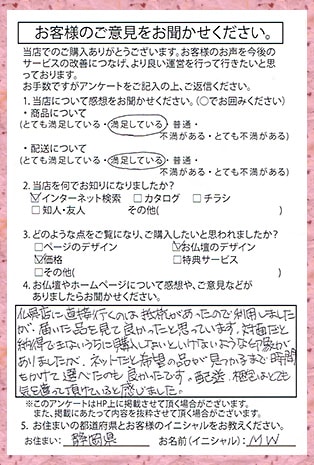 お客様のご意見をお聞かせください。
当店でのご購入ありがとうございます。お客様のお声を今後の
サービスの改善につなげ、より良い運営を行って行きたいと思っ
ております。
お手数ですがアンケートをご記入の上、ご返信ください。
1. 当店について感想をお聞かせください。(○でお囲みください)
・商品について
(とても満足している・満足している・普通・
不満がある・とても不満がある)
・配送について
(とても満足している・満足している・普通・
不満がある・とても不満がある)
2. 当店を何でお知りになりましたか?
☑インターネット検索 □カタログ □チラシ
□知人・友人 その他( )
3. どのような点をご覧になり、ご購入したいと思われましたか?
□ページのデザイン ☑お仏壇のデザイン
☑価格 □特典サービス
□その他( )
4. お仏壇やホームページについて感想や、ご意見などが
ありましたらお聞かせください。
仏具店に直接行くのは抵抗があったので利用しました
が、届いた品を見て良かったと思っています。対面だと
納得できないうちに購入しないといけないような印象が
ありましたが、ネットだと希望の品が見つかるまで時間
をかけて選べたのも良かったです。配送、梱包はとても
気を遣って頂けていると感じました。
※このアンケートはHP上に掲載させて頂く場合がございます。
また、掲載にあたって内容を抜粋させて頂く場合がございます。
5. お住まいの都道府県とお客様のイニシャルをお教えください。
お住まい: 静岡県 お名前(イニシャル): M W